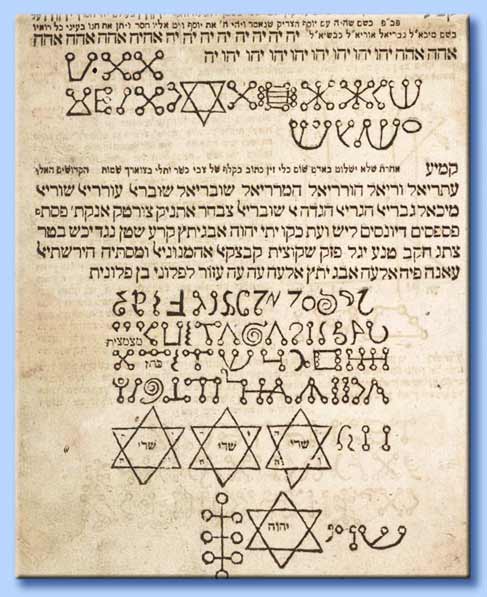 כשם שהיה עם יוסף הצדיק שנאמר ויהי ה' את יוסף ויט אליו חסד ויתן את חנו בעיני כל רואיו
בשם מיכא"ל גבריאל אוריא"ל כבשיא"ל יה יה יה יה יה יה יה יה אהיה אהה אהה אהה אהה
אהה אהה יהו יהו יהו יהו יהו יהו יהו יהו יה
קמיע אחרת שלא ישלוט באדם שום כלי זין כתוב בקלף של צבי כשר ותלי בצוארך שמות הקדושים האלו
עתריאל וריאל הורריאל המרריאל שובריאל שובריא עורריא שוריא
מיכאל גבריא הגריא הגדה א שובריא צבחר אתניק צורטק אנקת' פסתם
פספסים דיונסים ליש ועת כקו יתי יהוה אבגיתץ קרע שטן נגדיכש בטר
צתג חקב טנע יגל פזק שקוצית קבצקא אהמנוניא ומסתיה הירשתיא
עאנה פיה אלעה אבג יתץ אלעה עה עה עזור לפלוני בן פלונית
מצמצית
כהן
שדי שדי שדי
יהוה